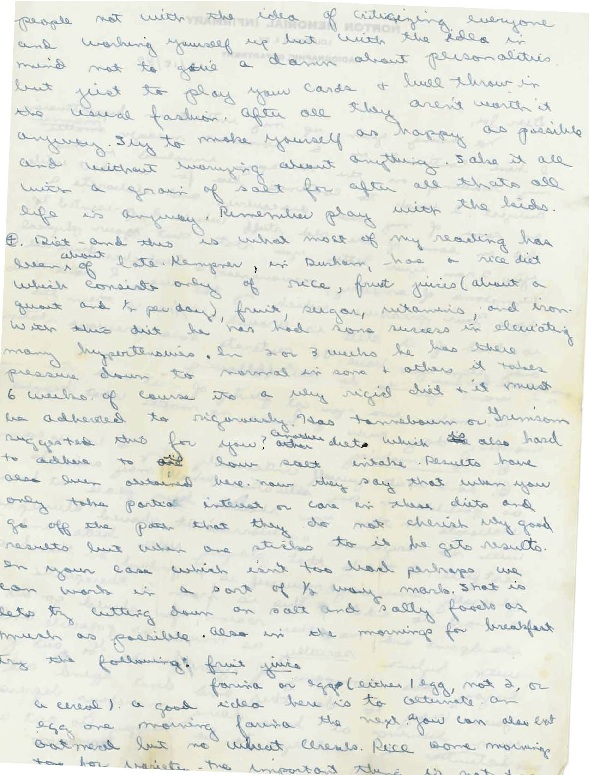 people not with the idea of criticizing everyone
and working yourself up but with the idea in
mind not to give a damn about personalities
but just to play your cards & bull throw in
the usual fashion. After all they aren't worth it
anyway. Try to make yourself as happy as possible
and without worrying about anything. Take it all
with a grain of salt for after all thats all
life is anyway. Remember play with the kids.
4. Diet - and this is what most of my reading has
been about of late. Kempner, in Durham, has a rice diet
which consists only of rice, fruit juices (about a
quart and 1/2 per day), fruit, sugar, vitamins, and iron.
With this diet he has had some success in
many hypertensives. In 2 or 3 weeks he has there
pressure down to normal in some & others it takes
6 weeks. Of course its a very rigid diet & it must
be adhered to rigorously. Has or Grimson
suggested this for you? Another diet which is also hard
to adhere to low salt intake. Results have
also been obtained here. Now they say that when you
only take partial interest or care in these diets and
go off the path that they do not cherish very good
results but when one strikes to it he gets results.
In your case which isn't too bad perhaps we
can work in a sort of 1/2 way mark. That is
lets try cutting down on salt and salty foods as
much as possible. Also in the mornings for breakfast
try the following: fruit juice
farina or eggs (either 1 egg, not 2, or
a cereal). A good idea here is to alternate an
egg one morning farina the next. You can also eat
oatmeal but no wheat cereals. Rice some mornings
too for variety. The important thing is not